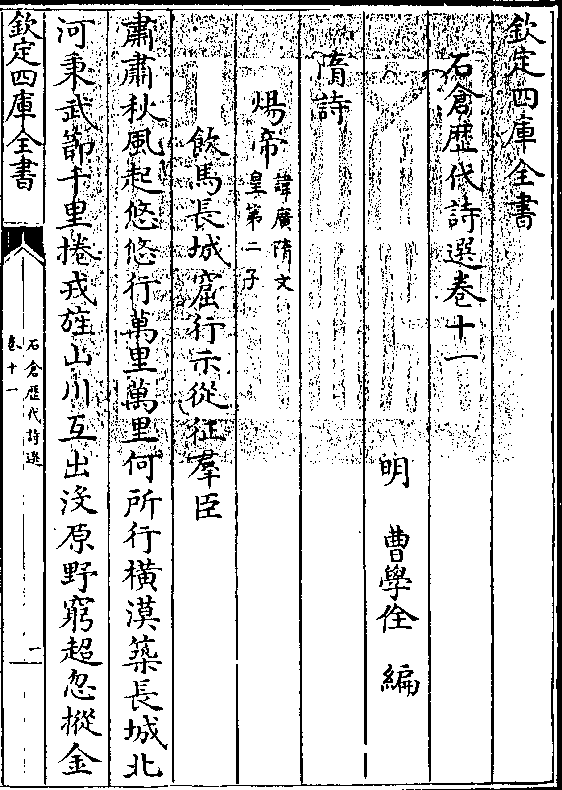 欽定四庫全書
石倉歴代詩選卷十一
明 曹學佺 編
隋詩
煬帝 諱廣隋文
皇第二子
飲馬長城窟行示從征羣臣
肅肅秋風起悠悠行萬里萬里何所行橫漠築長城北
河秉武節千里捲戎旌山川互出沒原野窮超忽摐金
欽定四庫全書
石倉歴代詩選
卷十一
一